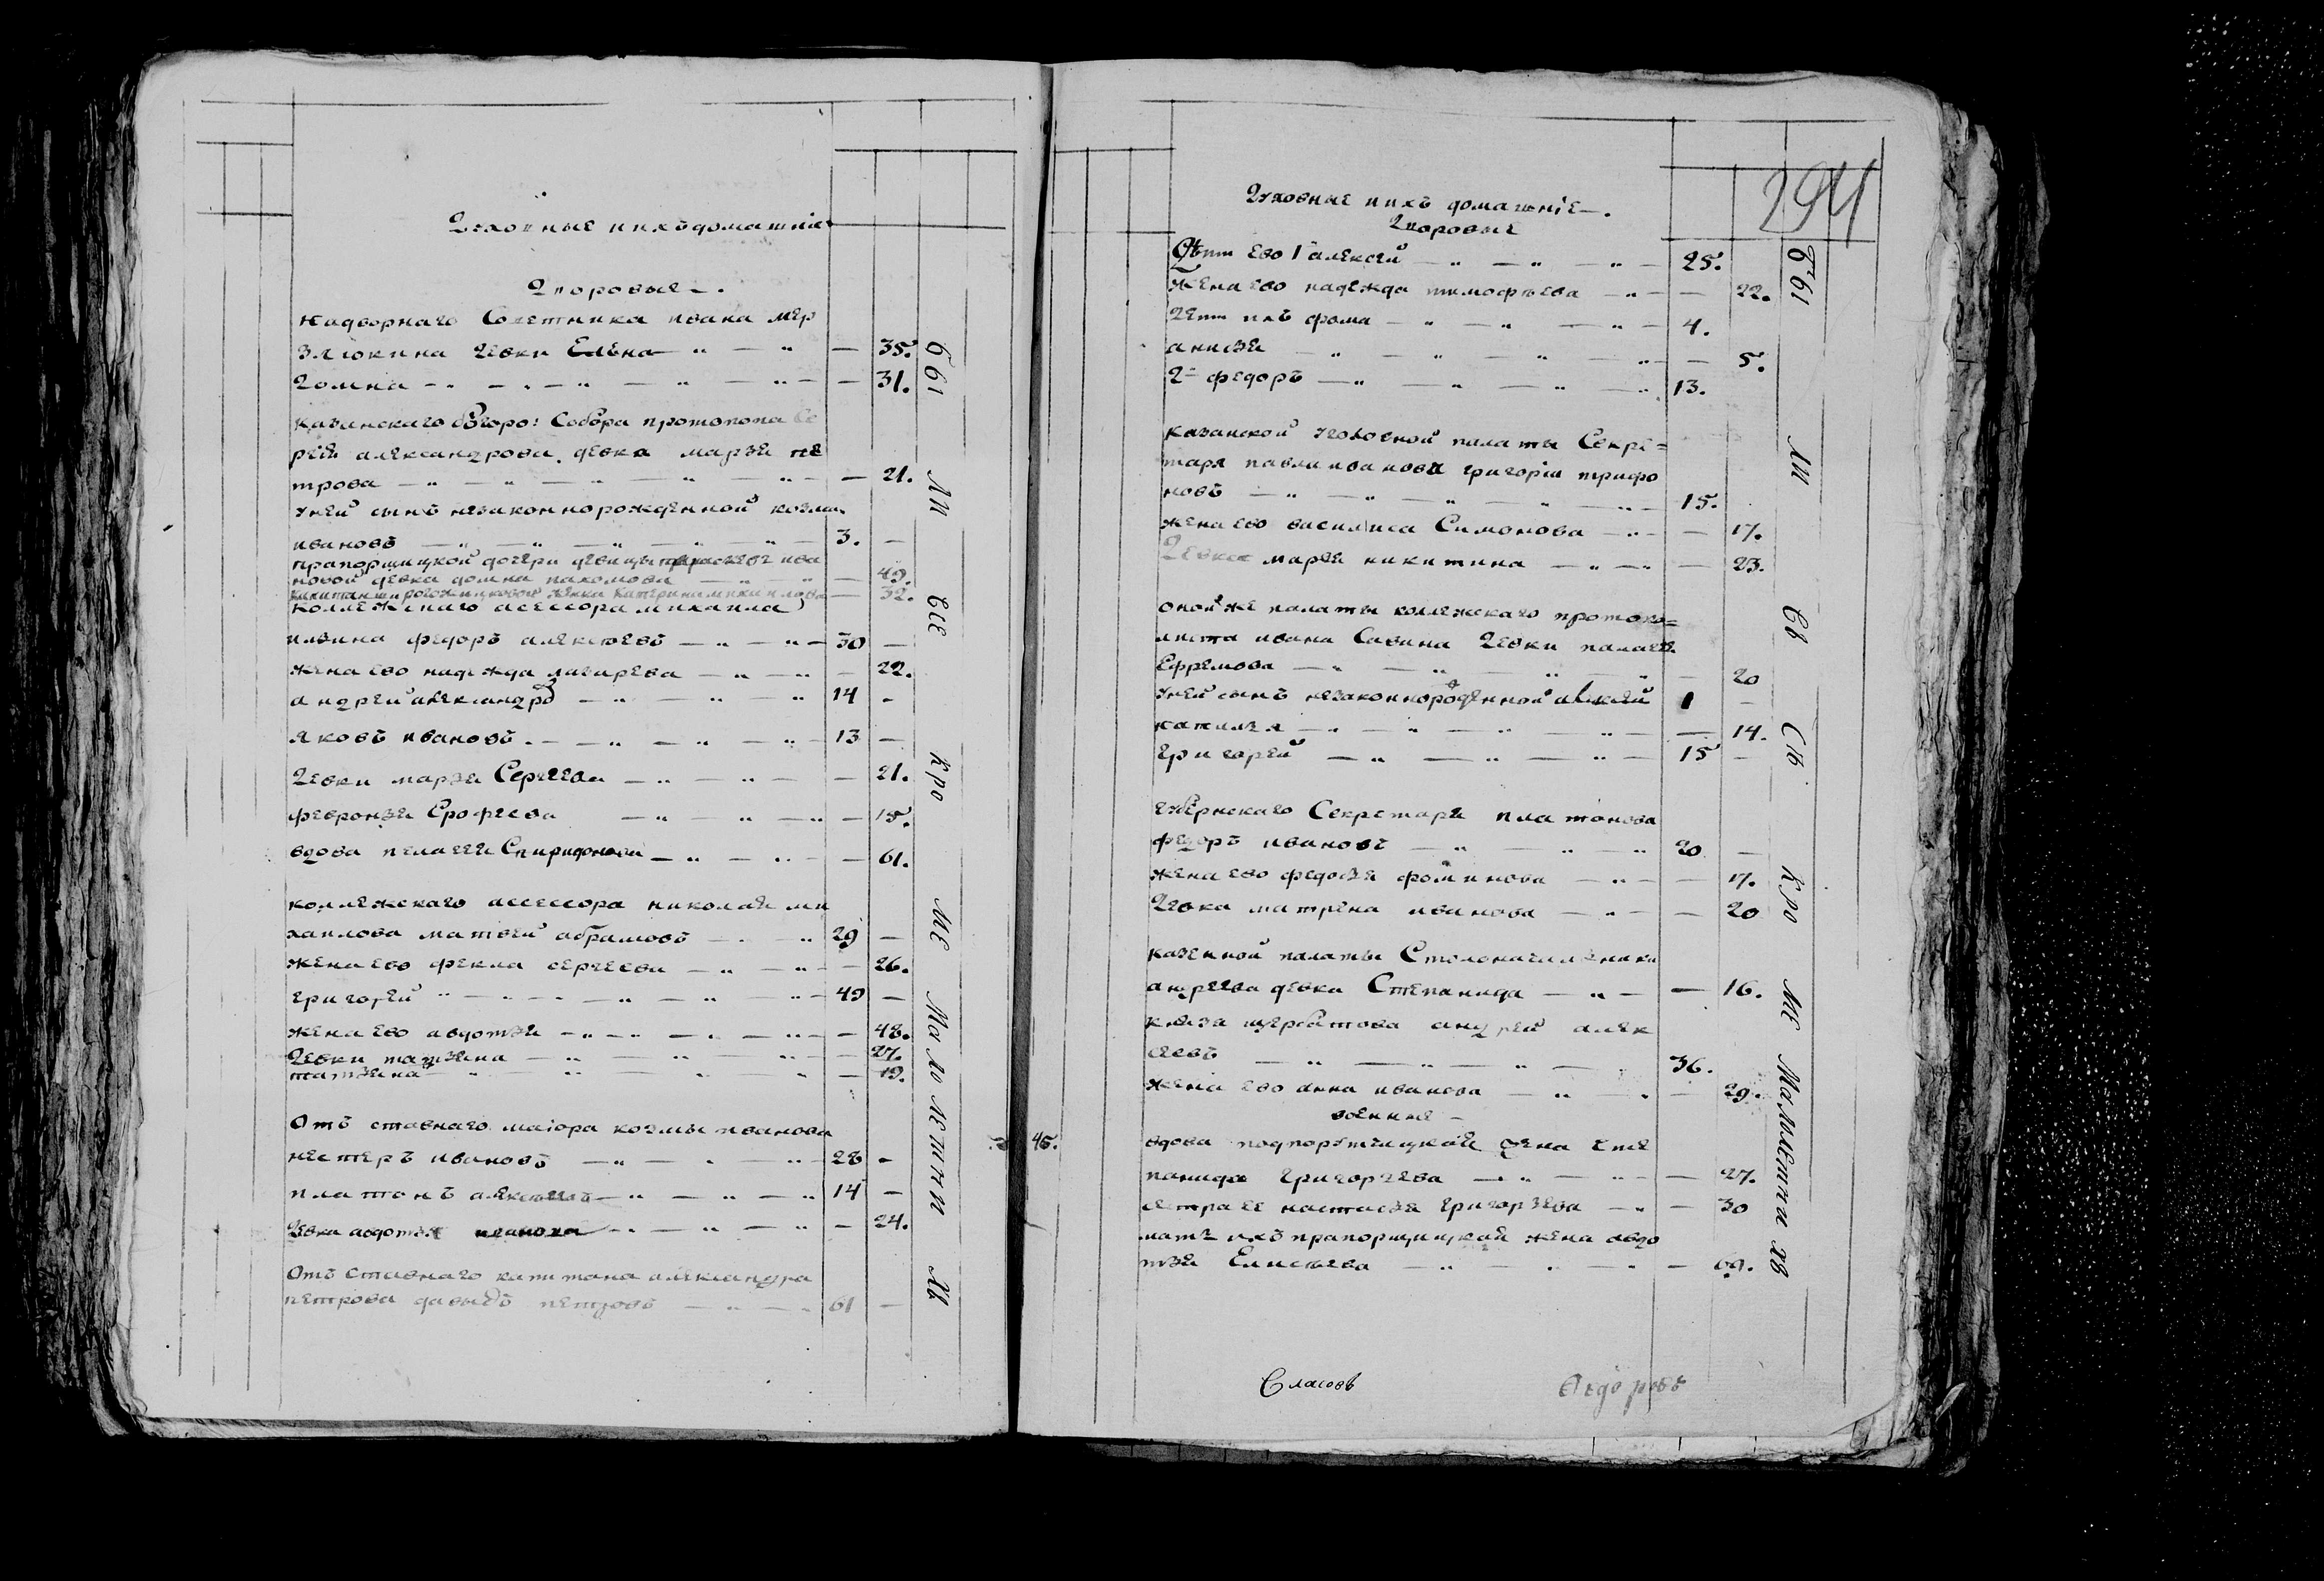 Духовные и ихъ домашніе
Дворовые
Надворнаго Советника ивана мер
злюкина девки Елена — 35.
Домна — 31.
казанскаго собора протопопа Се
ргія александрова девка марья пе
трова — 21.
уней сынъ незаконнорожденной козма
ивановъ — 3.
прапорщицкой дочери девицы ива
новой девка домна пахомова — 49.
жонка Катерина — 32.
коллежскаго асессора михаила
ильина федоръ алексеевъ — 30
жена ево надежда лазарева — 22.
андрей александро — 14
яковъ ивановъ — 13
Девки марья Сергеева — 21.
февронья Ерофеева — 15.
вдова пелагея Спиридонова — 61.
коллежскаго асессора николая ми
хаилова матвей абрамовъ — 29
жена ево фекла сергеева — 26.
григорей — 49
жена ево авдотья — 48.
Девки татьяна — 27.
татьяна — 19.
Отъ ставнаго маіора козмы иванова
нестеръ ивановъ — 28
платонъ алексеевъ — 14
Девка авдотья иванова — 24.
Отъ ставнаго капитана александра
петрова давыдъ петровъ — 61
был
ли
все
кро
ме
Малолетни
хъ
294
Духовные и ихъ домашніе
Дворовые
Дети ево 1 алексей — 25.
жена ево надежда тимофеева — 22.
Дети ихъ фома — 4.
анисья — 5.
2 федоръ — 13.
казанской уголовной палаты Секре=
таря павла иванова григорій трифо
новъ — 15.
жена ево василиса Симонова — 17.
Девка марья никитина — 23.
оной же палаты коллежскаго протоко=
листа ивана Савина Девки палагея
Ефремова — 20
уней сынъ незаконнорожденной алексей 1
наталья — 14.
григорей — 15
губернскаго Секретаря платонова
федоръ ивановъ — 20
жена ево федосья фоминова — 17.
Девка матрена иванова — 20
казенной палаты Столоначалника
андреева девка Степанида — 16.
князя щербатова андрей алек
сеевъ — 36.
жена ево анна иванова — 29.
военные —
45.
вдова подпорутчицкая жена сте
панида григорьева — 27.
сестра ее настасья григорьева — 30
мать ихъ прапорщицкая жена авдо
тья Елисеева — 69.
был
ли
Св
кро
ме
Малолетни
хъ
Власовъ
Федоровъ